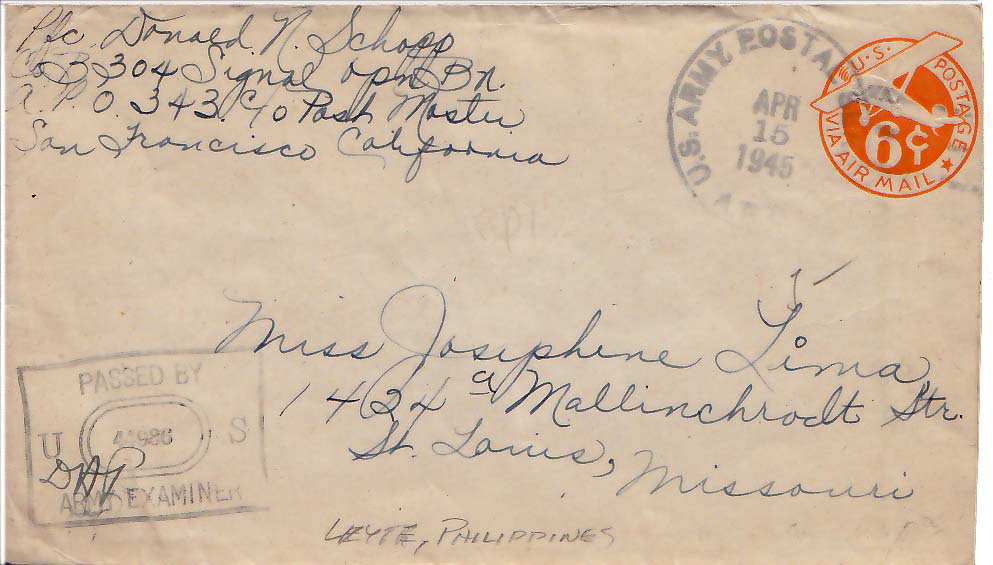 Pfc. Donald. N. Schopp
Co B 304 Signal opn Bn.
A.P.O. 343 C/o Post Master
San Francisco California
U.S. ARMY POSTAL
APR
15
1945
U.S. POSTAGE
6¢
VIA AIR MAIL
Miss Josephine Lima
1424 a Mallinchrodt Str.
St. Louis, Missouri
PASSED BY
U S
ARMY EXAMINER
LEYTE, PHILIPPINES